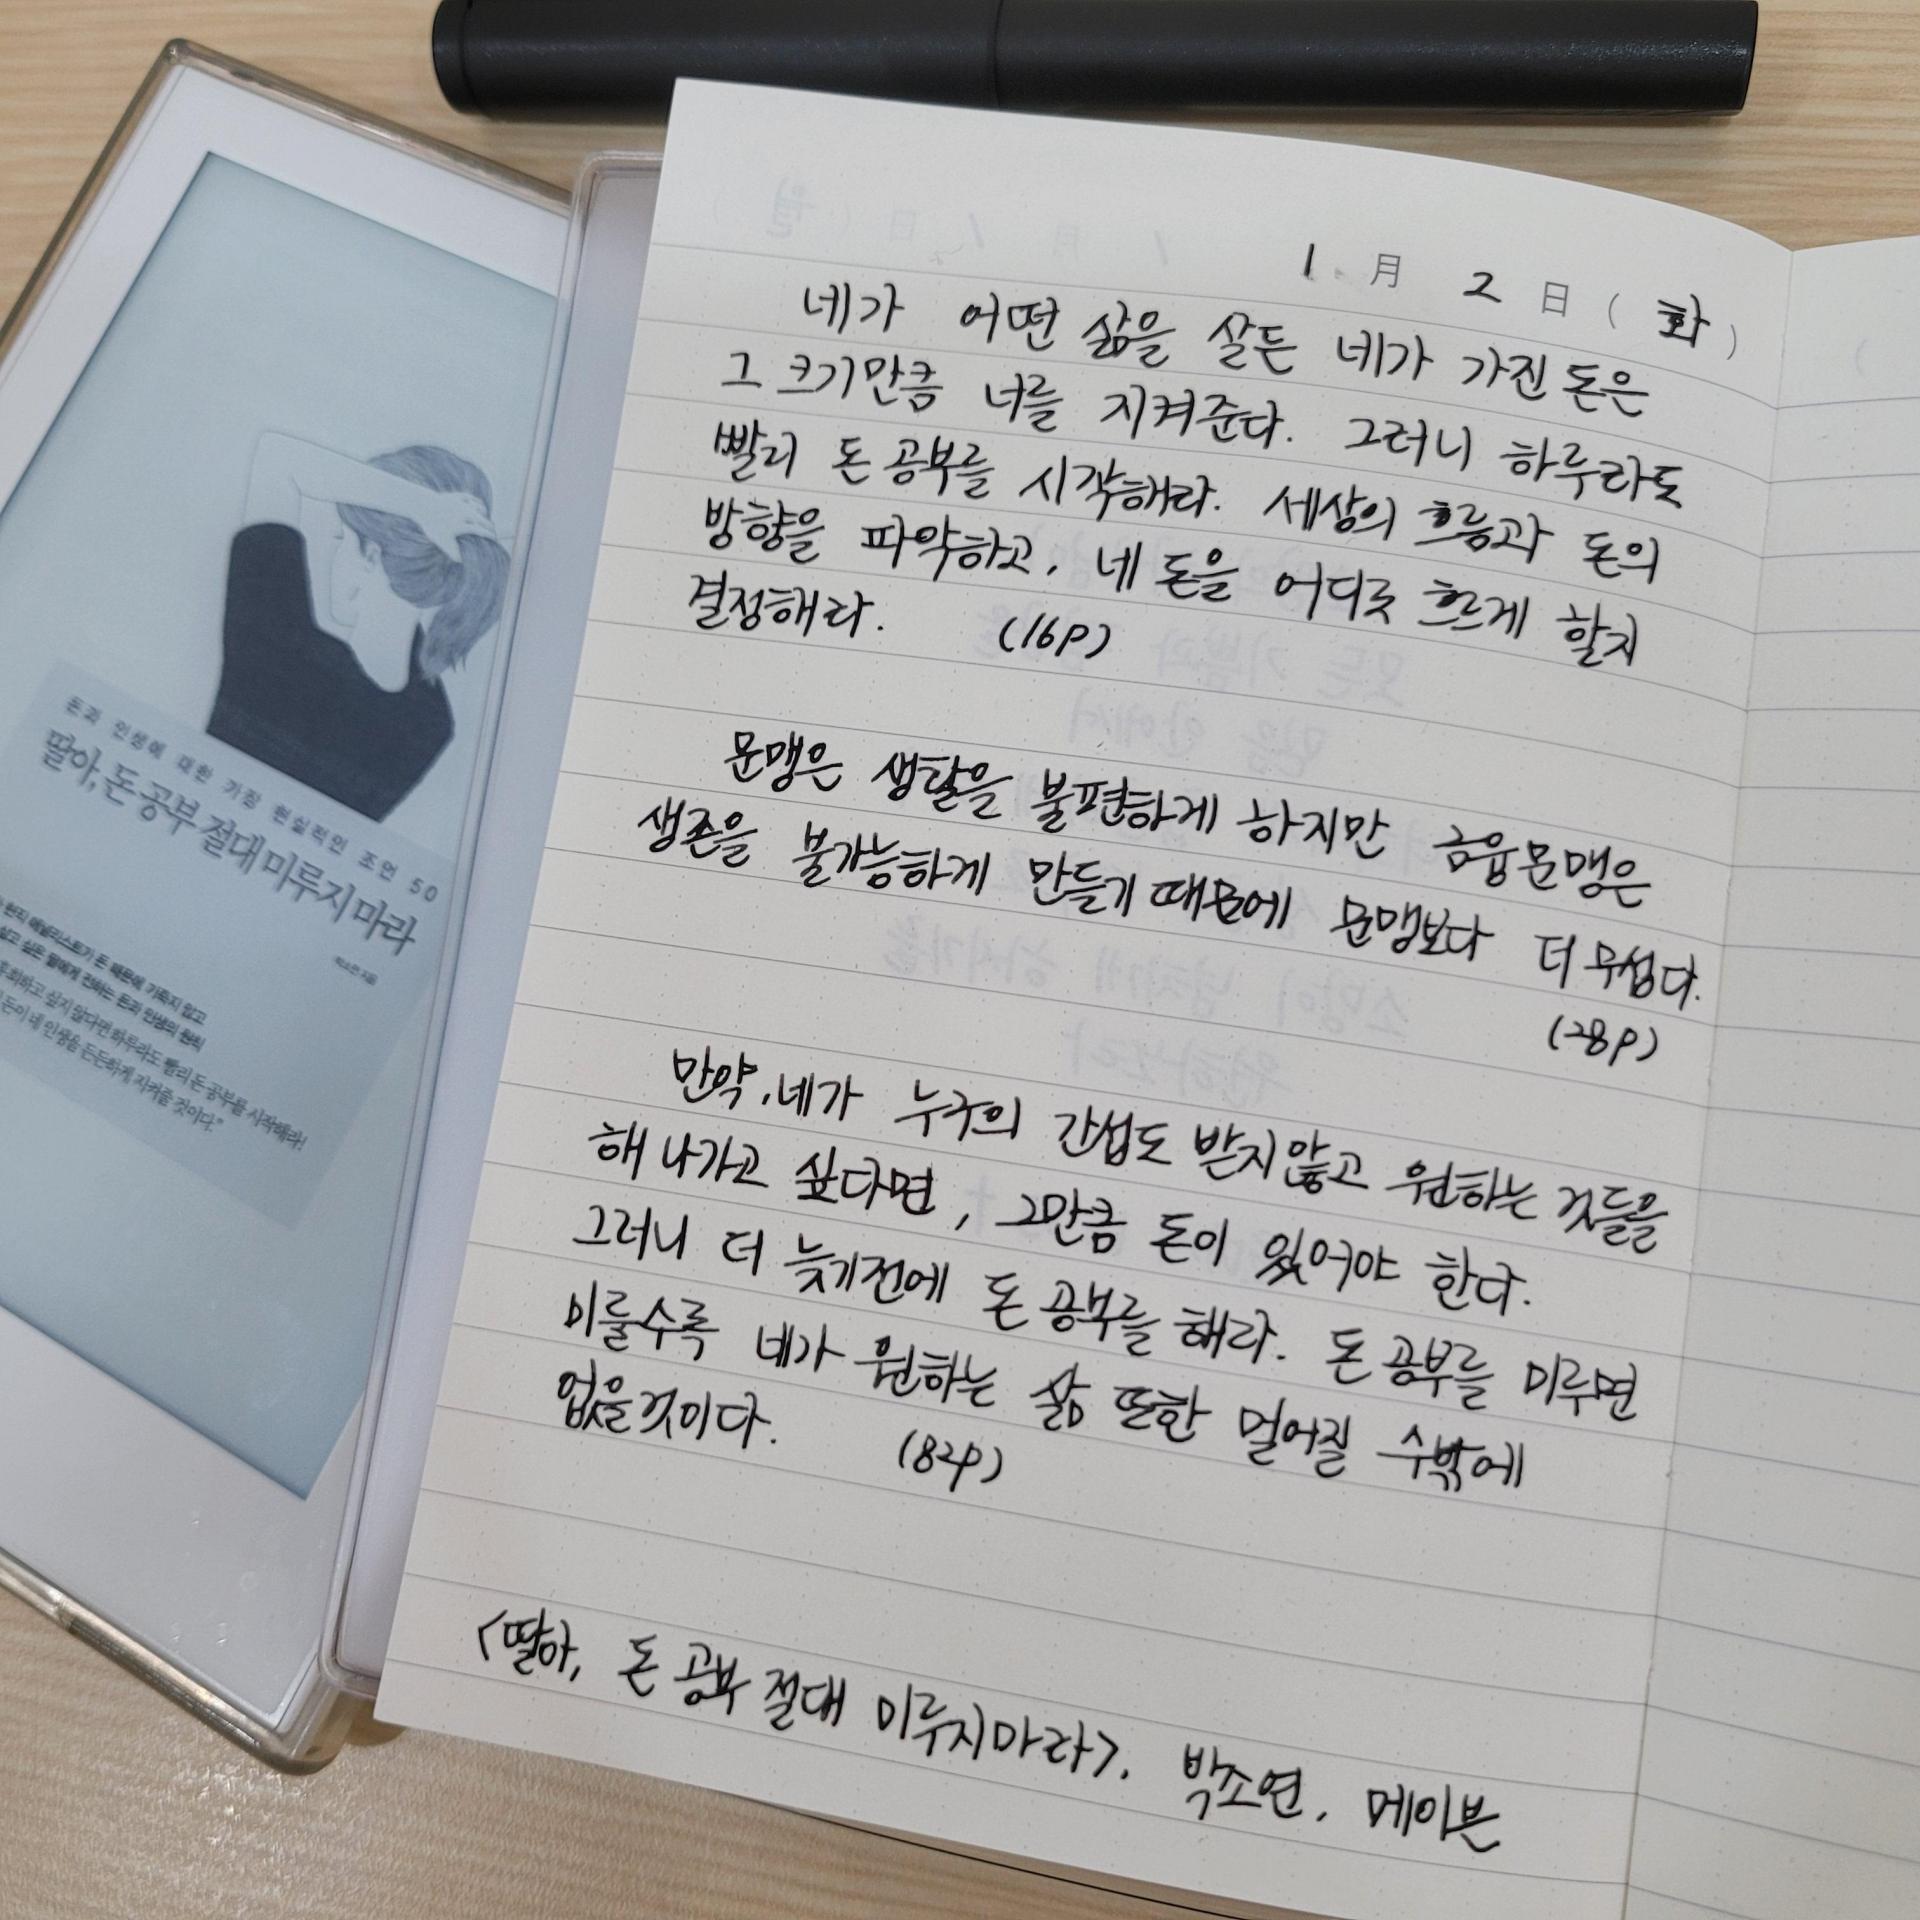 돈과 인생에 대한 가장 현실적인 조언 50
딸아, 돈 공부 절대 미루지 마라
박소연 지음
현직 애널리스트가 돈 때문에 기죽지 않고
살고 싶은 딸에게 전하는 돈과 인생의 원칙
후회하고 싶지 않다면 하루라도 빨리 돈 공부를 시작해라!
돈이 네 인생을 든든하게 지켜줄 것이다."
1 月 2 日 ( 화 )
네가 어떤 삶을 살든 네가 가진 돈은
그 크기만큼 너를 지켜준다. 그러니 하루라도
빨리 돈 공부를 시작해라. 세상의 흐름과 돈의
방향을 파악하고, 네 돈을 어디로 흐르게 할지
결정해라. (16p)
문맹은 생활을 불편하게 하지만 금융문맹은
생존을 불가능하게 만들기 때문에 문맹보다 더 무섭다.
(28p)
만약, 네가 누구의 간섭도 받지않고 원하는 것들을
해 나가고 싶다면, 그만큼 돈이 있어야 한다.
그러니 더 늦기전에 돈 공부를 해라. 돈 공부를 미루면
미룰수록 네가 원하는 삶 또한 멀어질 수밖에
없을것이다. (82p)
<딸아, 돈 공부 절대 미루지마라>, 박소연, 메이븐